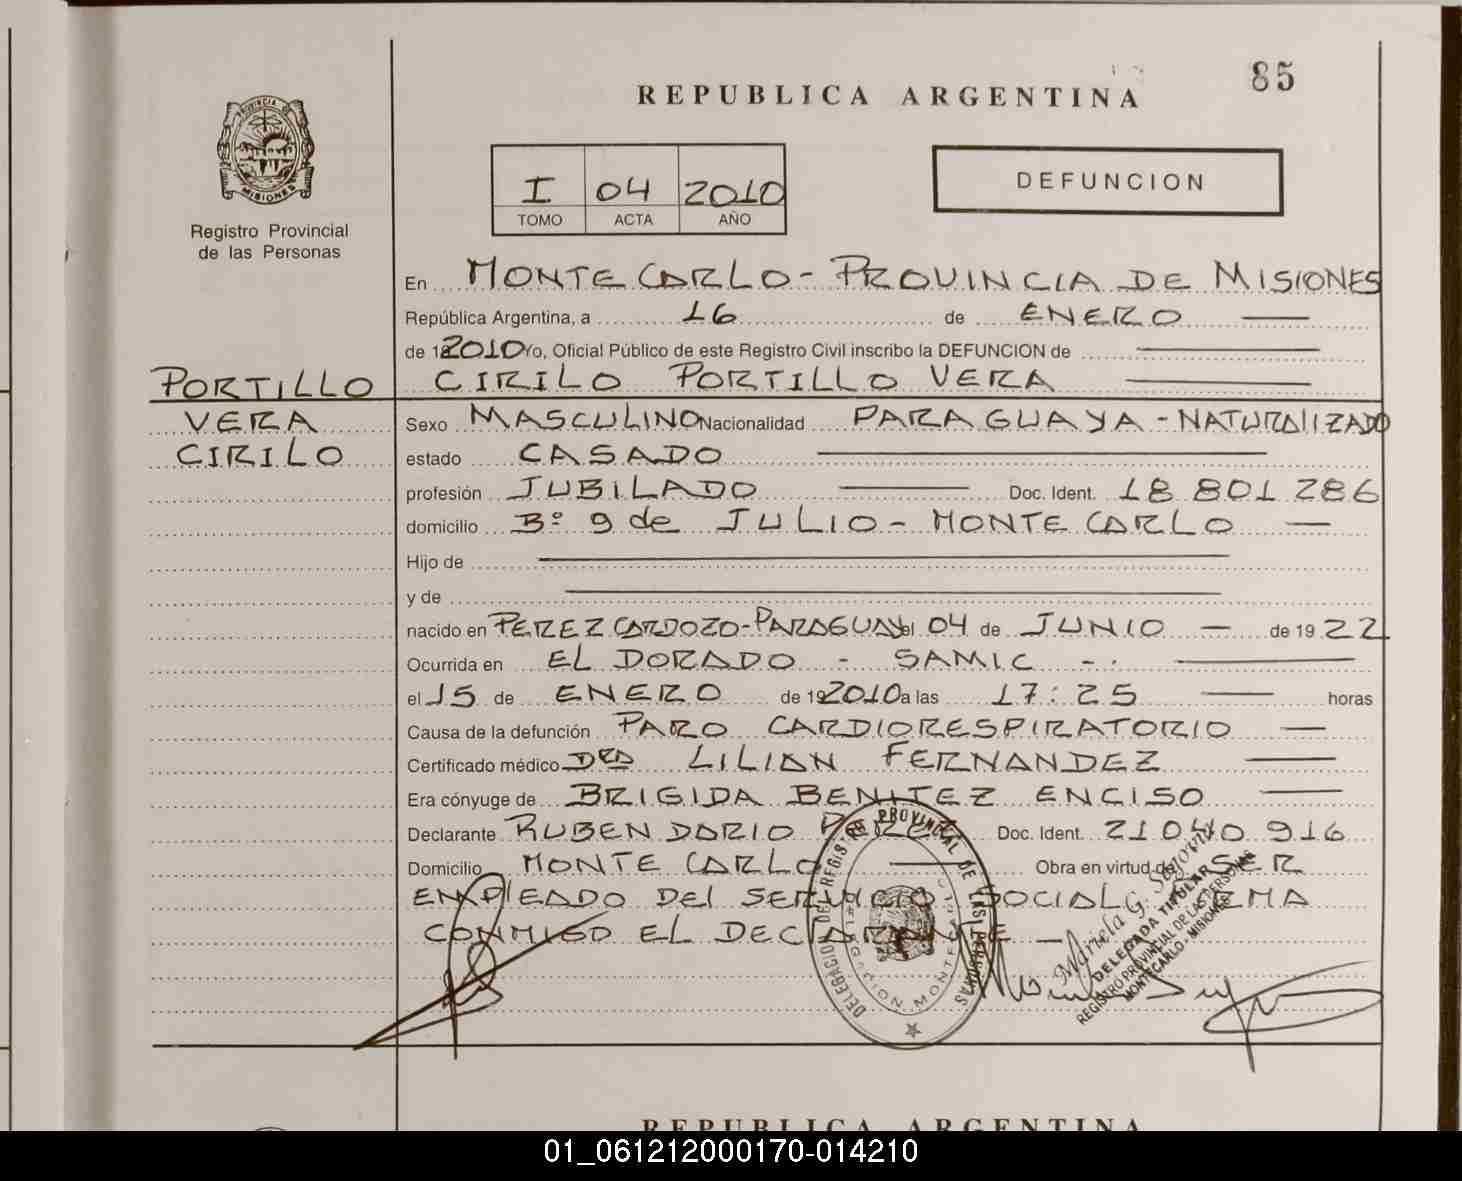 85
REPUBLICA ARGENTINA
PROVINCIA DE
MISIONES
Registro Provincial
de las Personas
I 04 2010
TOMO ACTA AÑO
DEFUNCION
En MONTECARLO - PROVINCIA DE MISIONES
República Argentina, a 16 de ENERO
de 2010 Yo, Oficial Público de este Registro Civil inscribo la DEFUNCION de
CIRILO PORTILLO VERA
PORTILLO
VERA
CIRILO
Sexo MASCULINO Nacionalidad PARAGUAYA - NATURALIZADO
estado CASADO
profesión JUBILADO Doc. Ident. 18 801 286
domicilio Bº 9 de JULIO - MONTECARLO
Hijo de
y de
nacido en PEREZ CARDOZO - PARAGUAY el 04 de JUNIO de 1922
Ocurrida en EL DORADO - SAMIC - .
el 15 de ENERO de 2010 a las 17:25 horas
Causa de la defunción PARO CARDIORESPIRATORIO
Certificado médico DRA LILIAN FERNANDEZ
Era cónyuge de BRIGIDA BENITEZ ENCISO
Declarante RUBEN DARIO PEREZ Doc. Ident. 21 040 916
Domicilio MONTECARLO Obra en virtud de SER
EMPLEADO DEL SERVICIO SOCIAL FIRMA
CONMIGO EL DECLARANTE -
DELEGACION DEL REGISTRO PROVINCIAL DE LAS PERSONAS
Mariela G. Segovia
DELEGADA TITULAR
REGISTRO PROVINCIAL DE LAS PERSONAS
MONTECARLO - MISIONES
REPUBLICA ARGENTINA
01_061212000170-014210